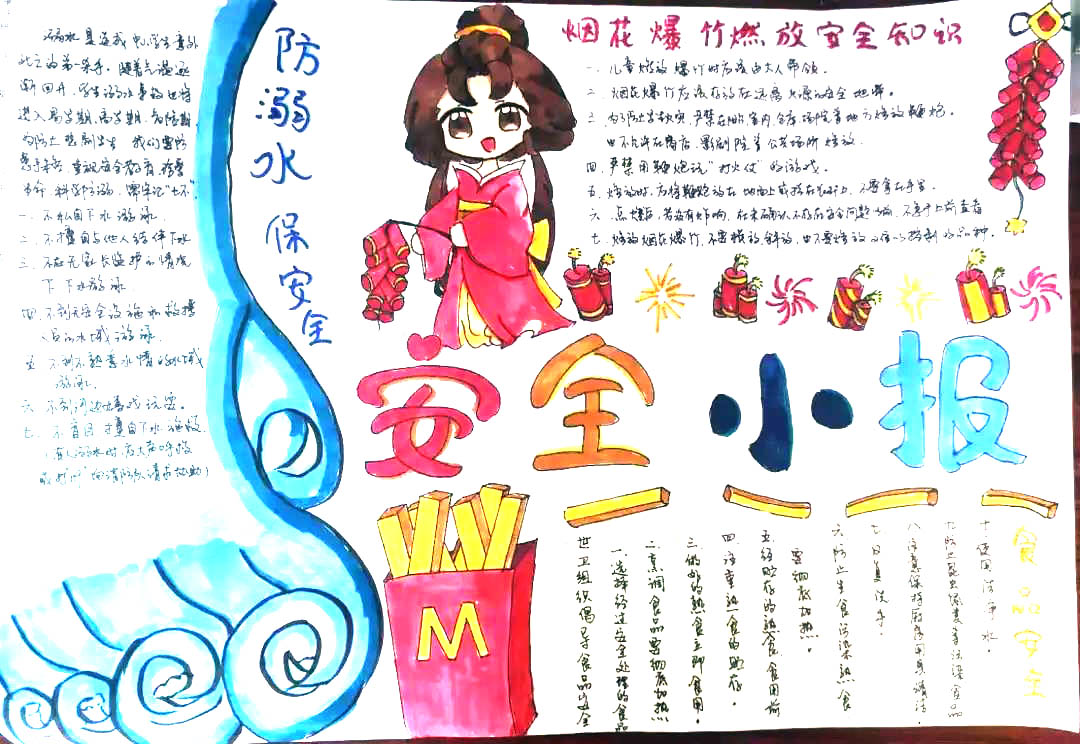 防溺水 保安全
溺水是造成中小学生意外
此之的第一杀手。随着气温逐
渐回升,学生溺水事故也将
进入易发期、高发期,
为防止悲剧发生,我们要
重视安全教育,
科学防溺,牢牢记“七不”
一、不私自下水游泳
二、不擅自与他人结伴下水
三、不在无家长监护的情况
下下水游泳
四、不到无安全设施和救援
人员的水域游泳
五、不到不熟悉水情的水域
游泳。
六、不到河边嬉戏玩耍。
七、不盲目擅自下水施救
(有人溺水时,应大声呼救
或打“119”向消防队请求协助)
烟花爆竹燃放安全知识
一、儿童燃放爆竹时应该由大人带领。
二、烟花爆竹应该存放在远离火源的安全地带。
三、为了防止发生火灾,严禁在阳台、室内、仓库、场院等地方燃放鞭炮。
也不允许在商店、影剧院等公共场所燃放
四、严禁用鞭炮玩“打火仗”的游戏。
五、燃放时,应将鞭炮放在地面上或挂在长杆上,不要拿在手里。
六、点燃后,若没有炸响,在未确认不存在安全问题之前,不要上前查看
七、燃放烟花爆竹,不要横放、斜放,也不要燃放
安全小报
M
食品安全
世卫组织倡导食品安全
一、选择经过安全处理的食品
二、烹调食品要彻底加热
三、做好的熟食立即食用。
四、
五、经贮存的熟食食用前
要彻底加热。
六、防止生食污染熟食
七、
八、注意保持厨房用具清洁。
九、防止昆虫
十、使用洁净水。